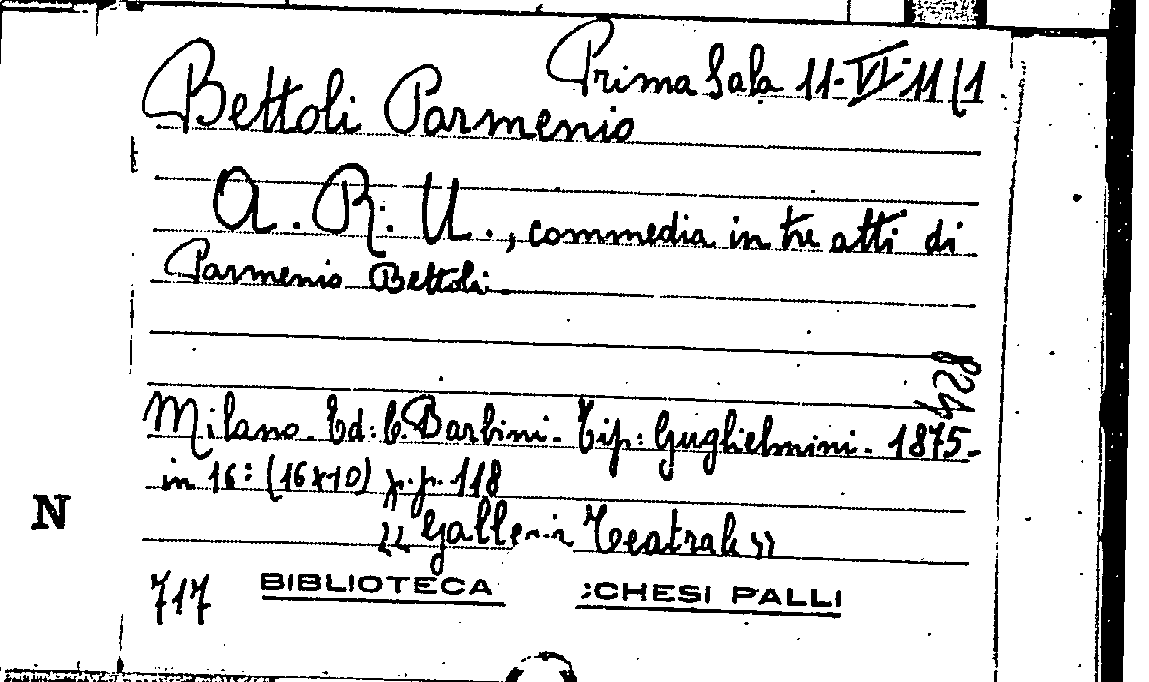 Prima Sala 11-VI-11(1
Bettoli Parmenio
A. R. U., commedia in tre atti di
Parmenio Bettoli.
824
Milano. Ed: C. Barbini. Tip: Guglielmini. 1875-
in 16: (16x10) p.p. 118
"Galleria Teatrale"
N
717
BIBLIOTECA :CHESI PALLI